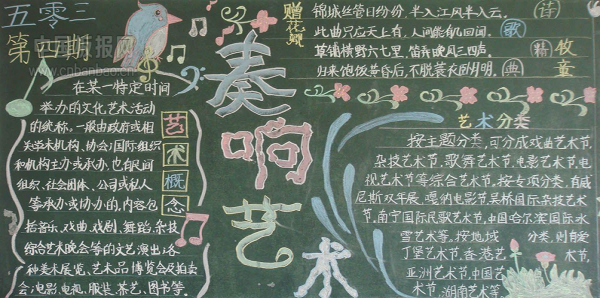 五零三
第四期
中国板报网
www.cnbanbao.cn
奏响艺术
在某一特定时间
举办的文化艺术活动
的统称,一般由政府或相
关学术机构、协会、国际组织
和机构主办或承办,也有民间
组织、社会团体、公司或私人
等承办或协办的,内容包
括音乐、戏曲、戏剧、舞蹈、杂技
综合艺术晚会等的文艺演出;各
种美术展览、艺术品博览会及拍卖
会;电影、电视、服装、茶艺、图书等。
艺术概念
赠花卿
锦城丝管日纷纷,半入江风半入云,
此曲只应天上有,人间能有几回闻。
草铺横野六七里,笛弄晚风三四声。
归来饱饭黄昏后,不脱蓑衣卧月明。
诗
歌
精
典
牧童
艺术分类
按主题分类,可分成戏曲艺术节、
杂技艺术节、歌舞艺术节、电影艺术节、电
视艺术节等综合艺术节、按专项分类,有威
尼斯双年展、戛纳电影节、吴桥国际杂技艺术
节、南宁国际民歌艺术节、中国哈尔滨国际冰
雪艺术等。按地域分类,则有爱
丁堡艺术节、香港艺术节、
亚洲艺术节、中国艺术
节、湖南艺术节等。